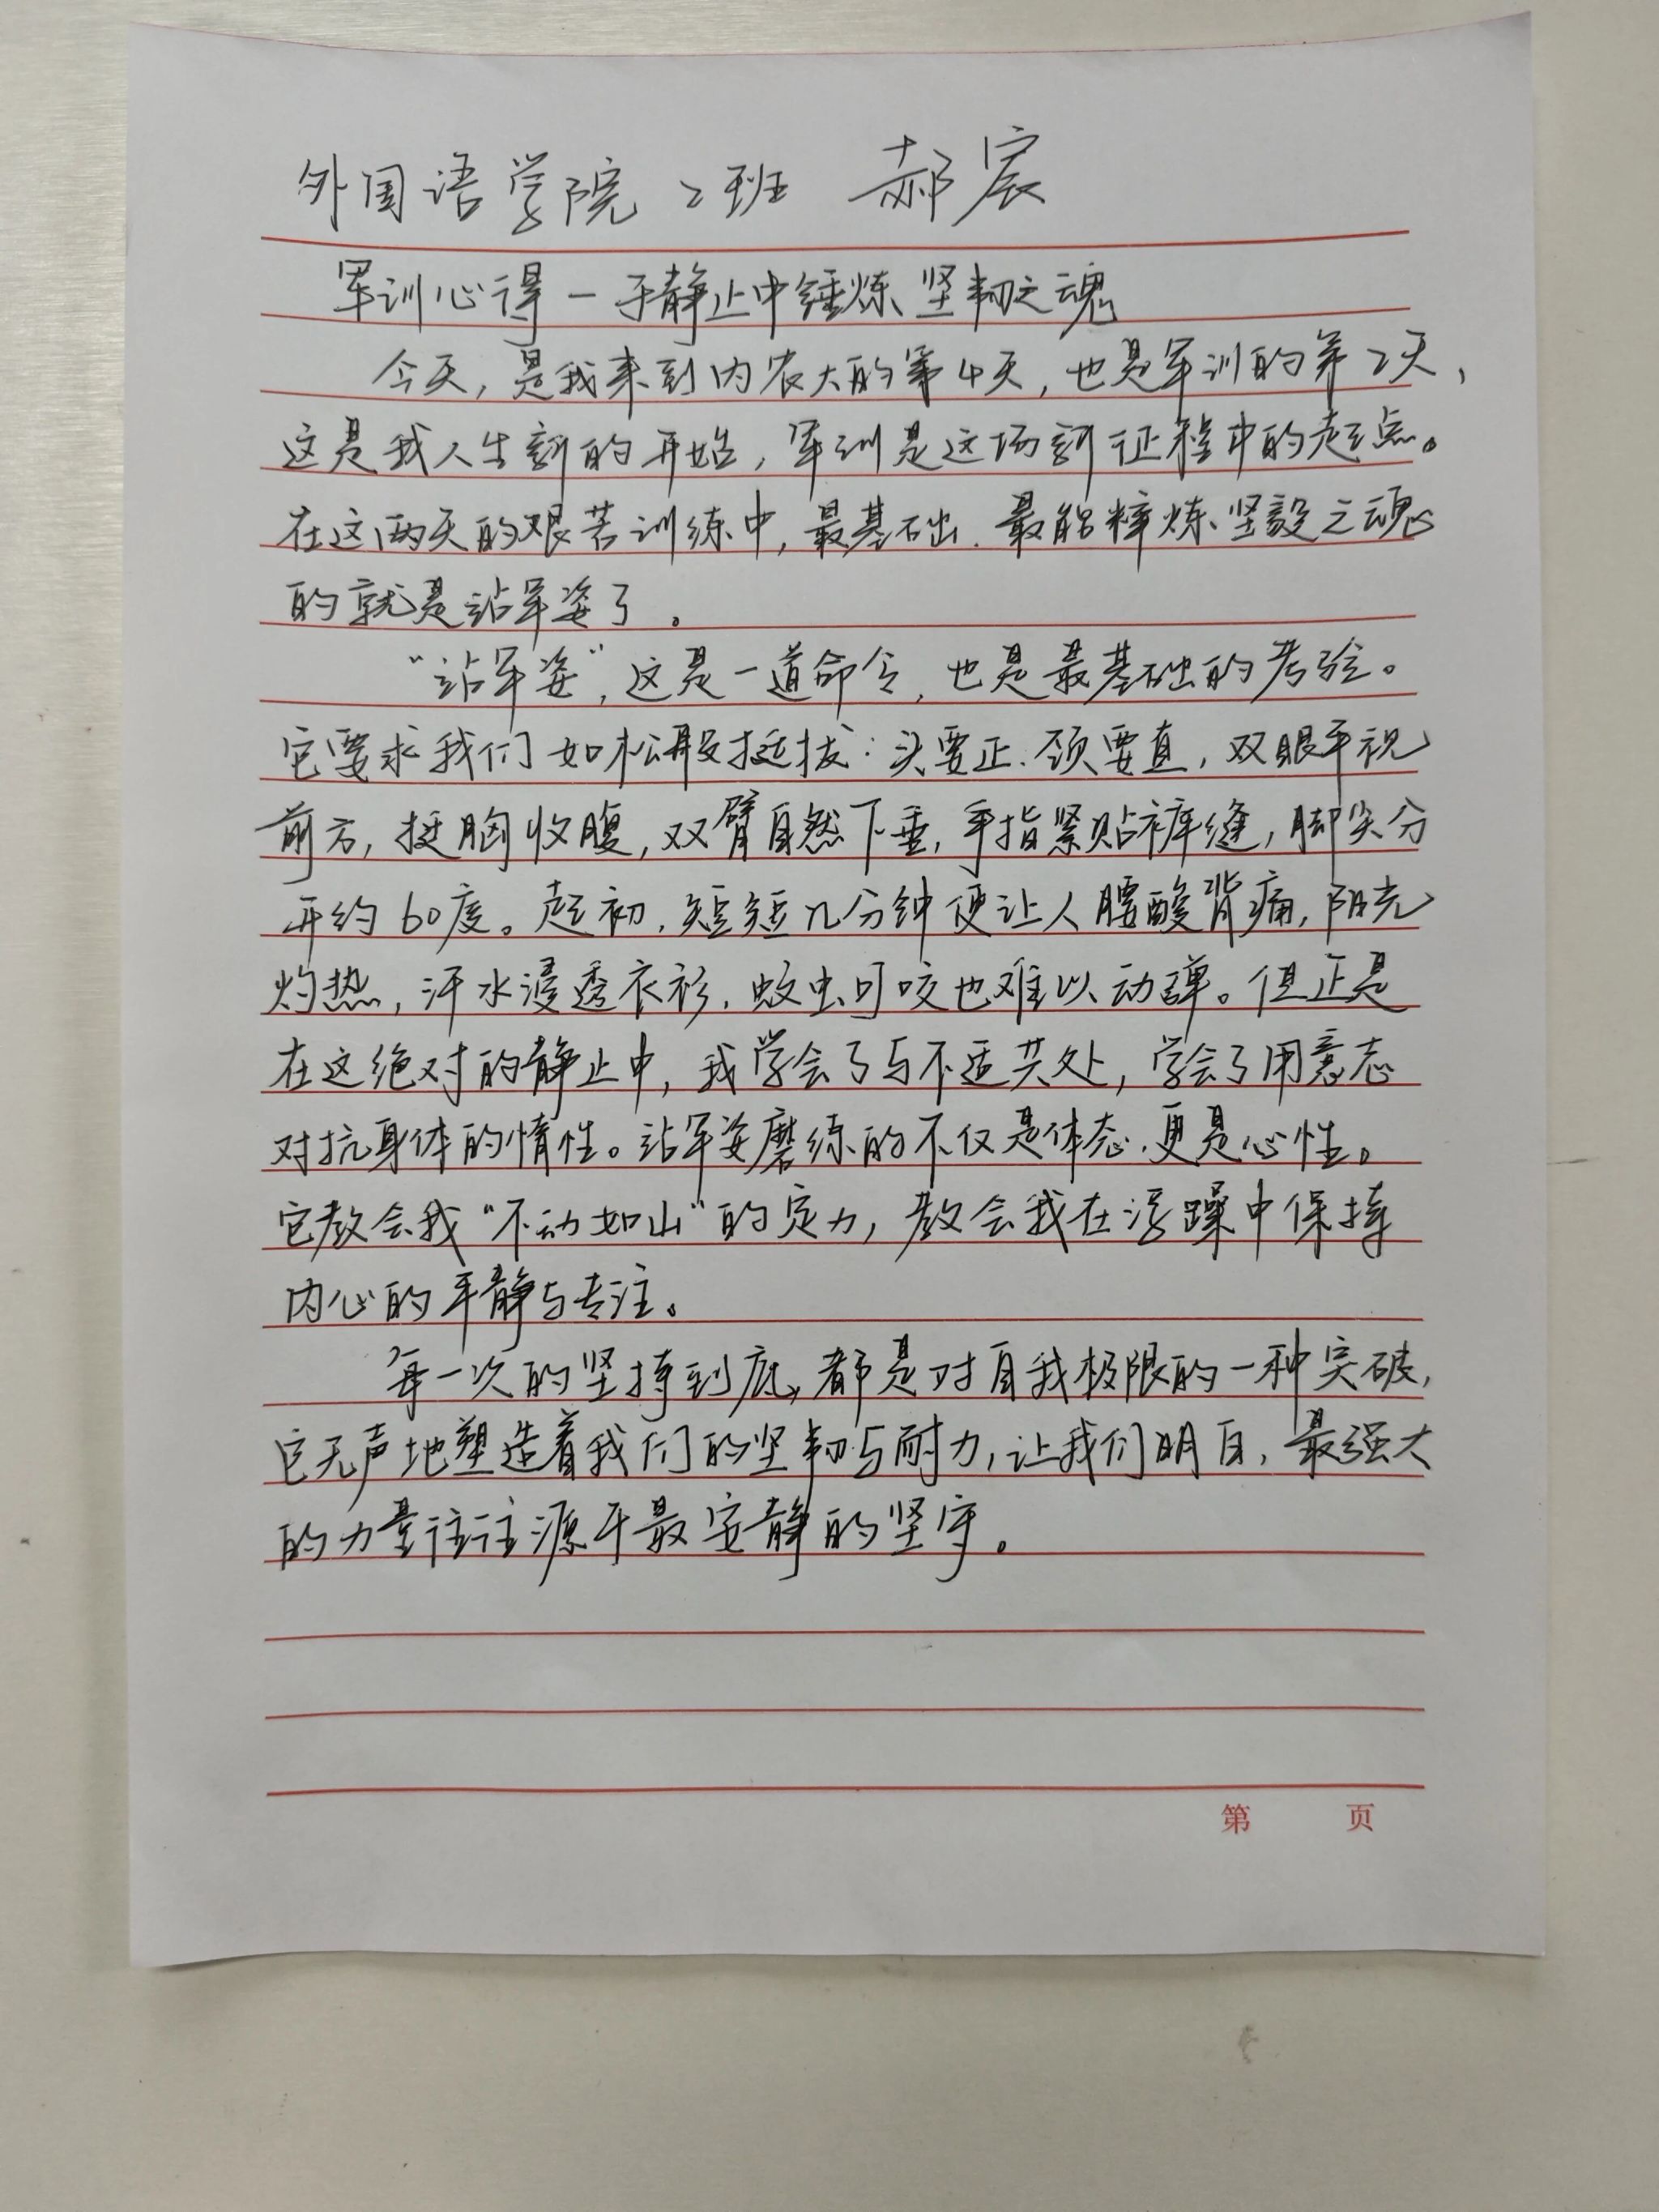 外国语学院 2班 郝宸
军训心得—于静止中锤炼坚韧之魂
今天,是我来到内农大的第4天,也是军训的第2天,
这是我人生新的开始,军训是这场新征程中的起点。
在这两天的艰苦训练中,最基础、最能粹炼坚毅之魂
的就是站军姿了。
“站军姿”,这是一道命令,也是最基础的考验。
它要求我们如松般挺拔:头要正、颈要直,双眼平视
前方,挺胸收腹,双臂自然下垂,手指紧贴裤缝,脚尖分
开约60度。起初,短短几分钟便让人腰酸背痛,阳光
灼热,汗水浸透衣衫,蚊虫叮咬也难以动弹。但正是
在这绝对的静止中,我学会了与不适共处,学会了用意志
对抗身体的惰性。站军姿磨练的不仅是体态,更是心性。
它教会我“不动如山”的定力,教会我在浮躁中保持
内心的平静与专注。
每一次的坚持到底,都是对自我极限的一种突破,
它无声地塑造着我们的坚韧与耐力,让我们明白,最强大
的力量往往源于最安静的坚守。
第 页